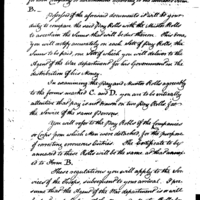 B.—
Possessed of the aforesaid documents it will be your
duty to compare the said Pay Rolls with the Muster Rolls
to ascertain the Sums that will be due thereon. This done
you will certify accurately on each Set of Pay Rolls the
Sums to be paid, one Set of which you will deliver to the
Agent of the War department for his Government in the
distribution of his Money.
In examining the Pay and Muster Rolls agreeably
to the forms marked C. and D. you are to be entirely
attentive that pay is not drawn on two Pay Rolls for the
Service of the same Person.
You will refer to the Pay Rolls of the Companies
or Corps from which Men were detached, for the purpose
of executing extraneous Duties. The Certificate to be
annexed to those Rolls will be the same as that annexed
to Form B.
These regulations you will apply to the
of the Troops, subsequent to your arrival. I
that the Agent of the War department is or will